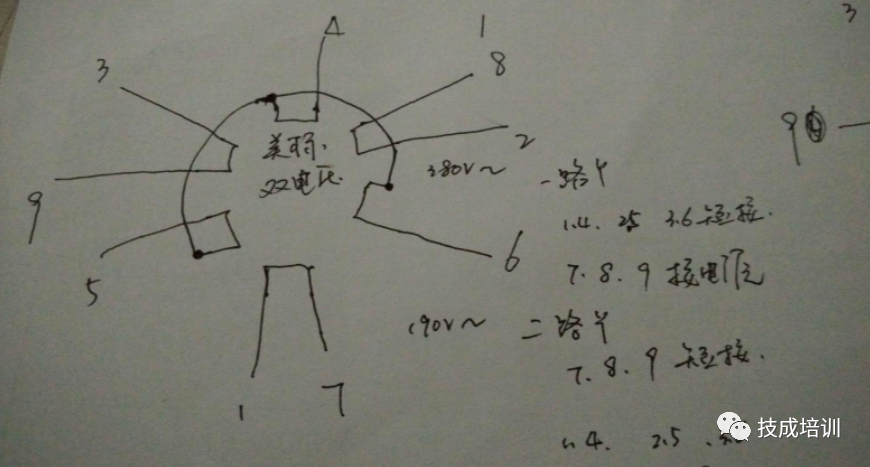 3
4
1
3
8
2
9
9
美标.
双电压.
380V~
一路Y
1.4. 25 3.6短接.
7.8.9接电源
6
5
190V~
二路Y
7.8.9短接.
1
7
1.4. 2.5.
技成培训